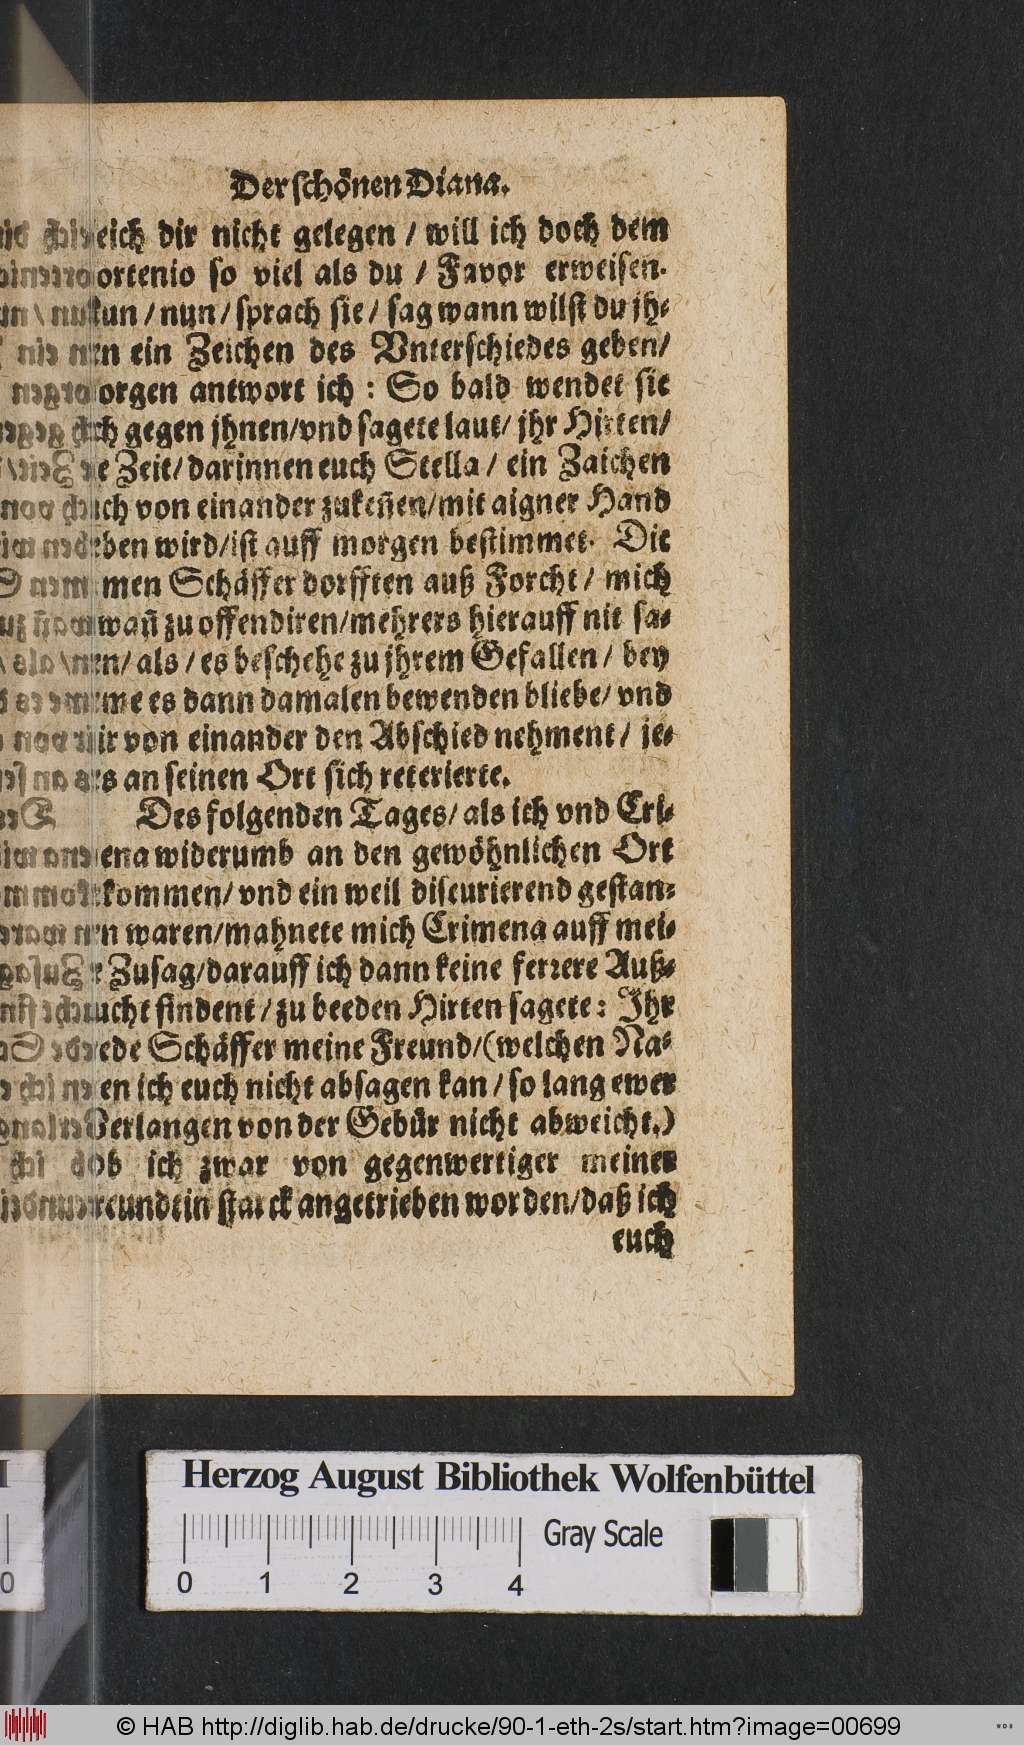 Der schönen Diana.
eich dir nicht gelegen / will ich doch dem
ortenio so viel als du / Favor erweisen.
un / nun / sprach sie / sag wann wilst du jh⸗
en ein Zeichen des Vnterschiedes geben/
orgen antwort ich : So bald wendet sie
ch gegen jhnen/vnd sagete laut/ jhr Hirten/
e Zeit/ darinnen euch Stella / ein Zaichen
ch von einander zukeñen/mit aigner Hand
ben wird/ist auff morgen bestimmet. Die
men Schäffer dorfften auß Forcht / mich
wañ zu offendiren/mehrers hierauff nit sa⸗
en/ als / es beschehe zu jhrem Gefallen / bey
me es dann damalen bewenden bliebe/ vnd
ir von einander den Abschied nehment / je⸗
s an seinen Ort sich reterierte.
Des folgenden Tages/ als ich vnd Cri⸗
ena widerumb an den gewöhnlichen Ort
kommen/ vnd ein weil discurierend gestan⸗
n waren/mahnete mich Crimena auff mei⸗
e Zusag/darauff ich dann keine fernere Auß⸗
ucht findent / zu beeden Hirten sagete : Ihr
ede Schäffer meine Freund/(welchen Na⸗
en ich euch nicht absagen kan / so lang ewer
Verlangen von der Gebür nicht abweicht.)
ob ich zwar von gegenwertiger meiner
reundtin starck angetrieben worden/daß ich
euch
Herzog August Bibliothek Wolfenbüttel
Gray Scale
0 1 2 3 4
0
© HAB http://diglib.hab.de/drucke/90-1-eth-2s/start.htm?image=00699